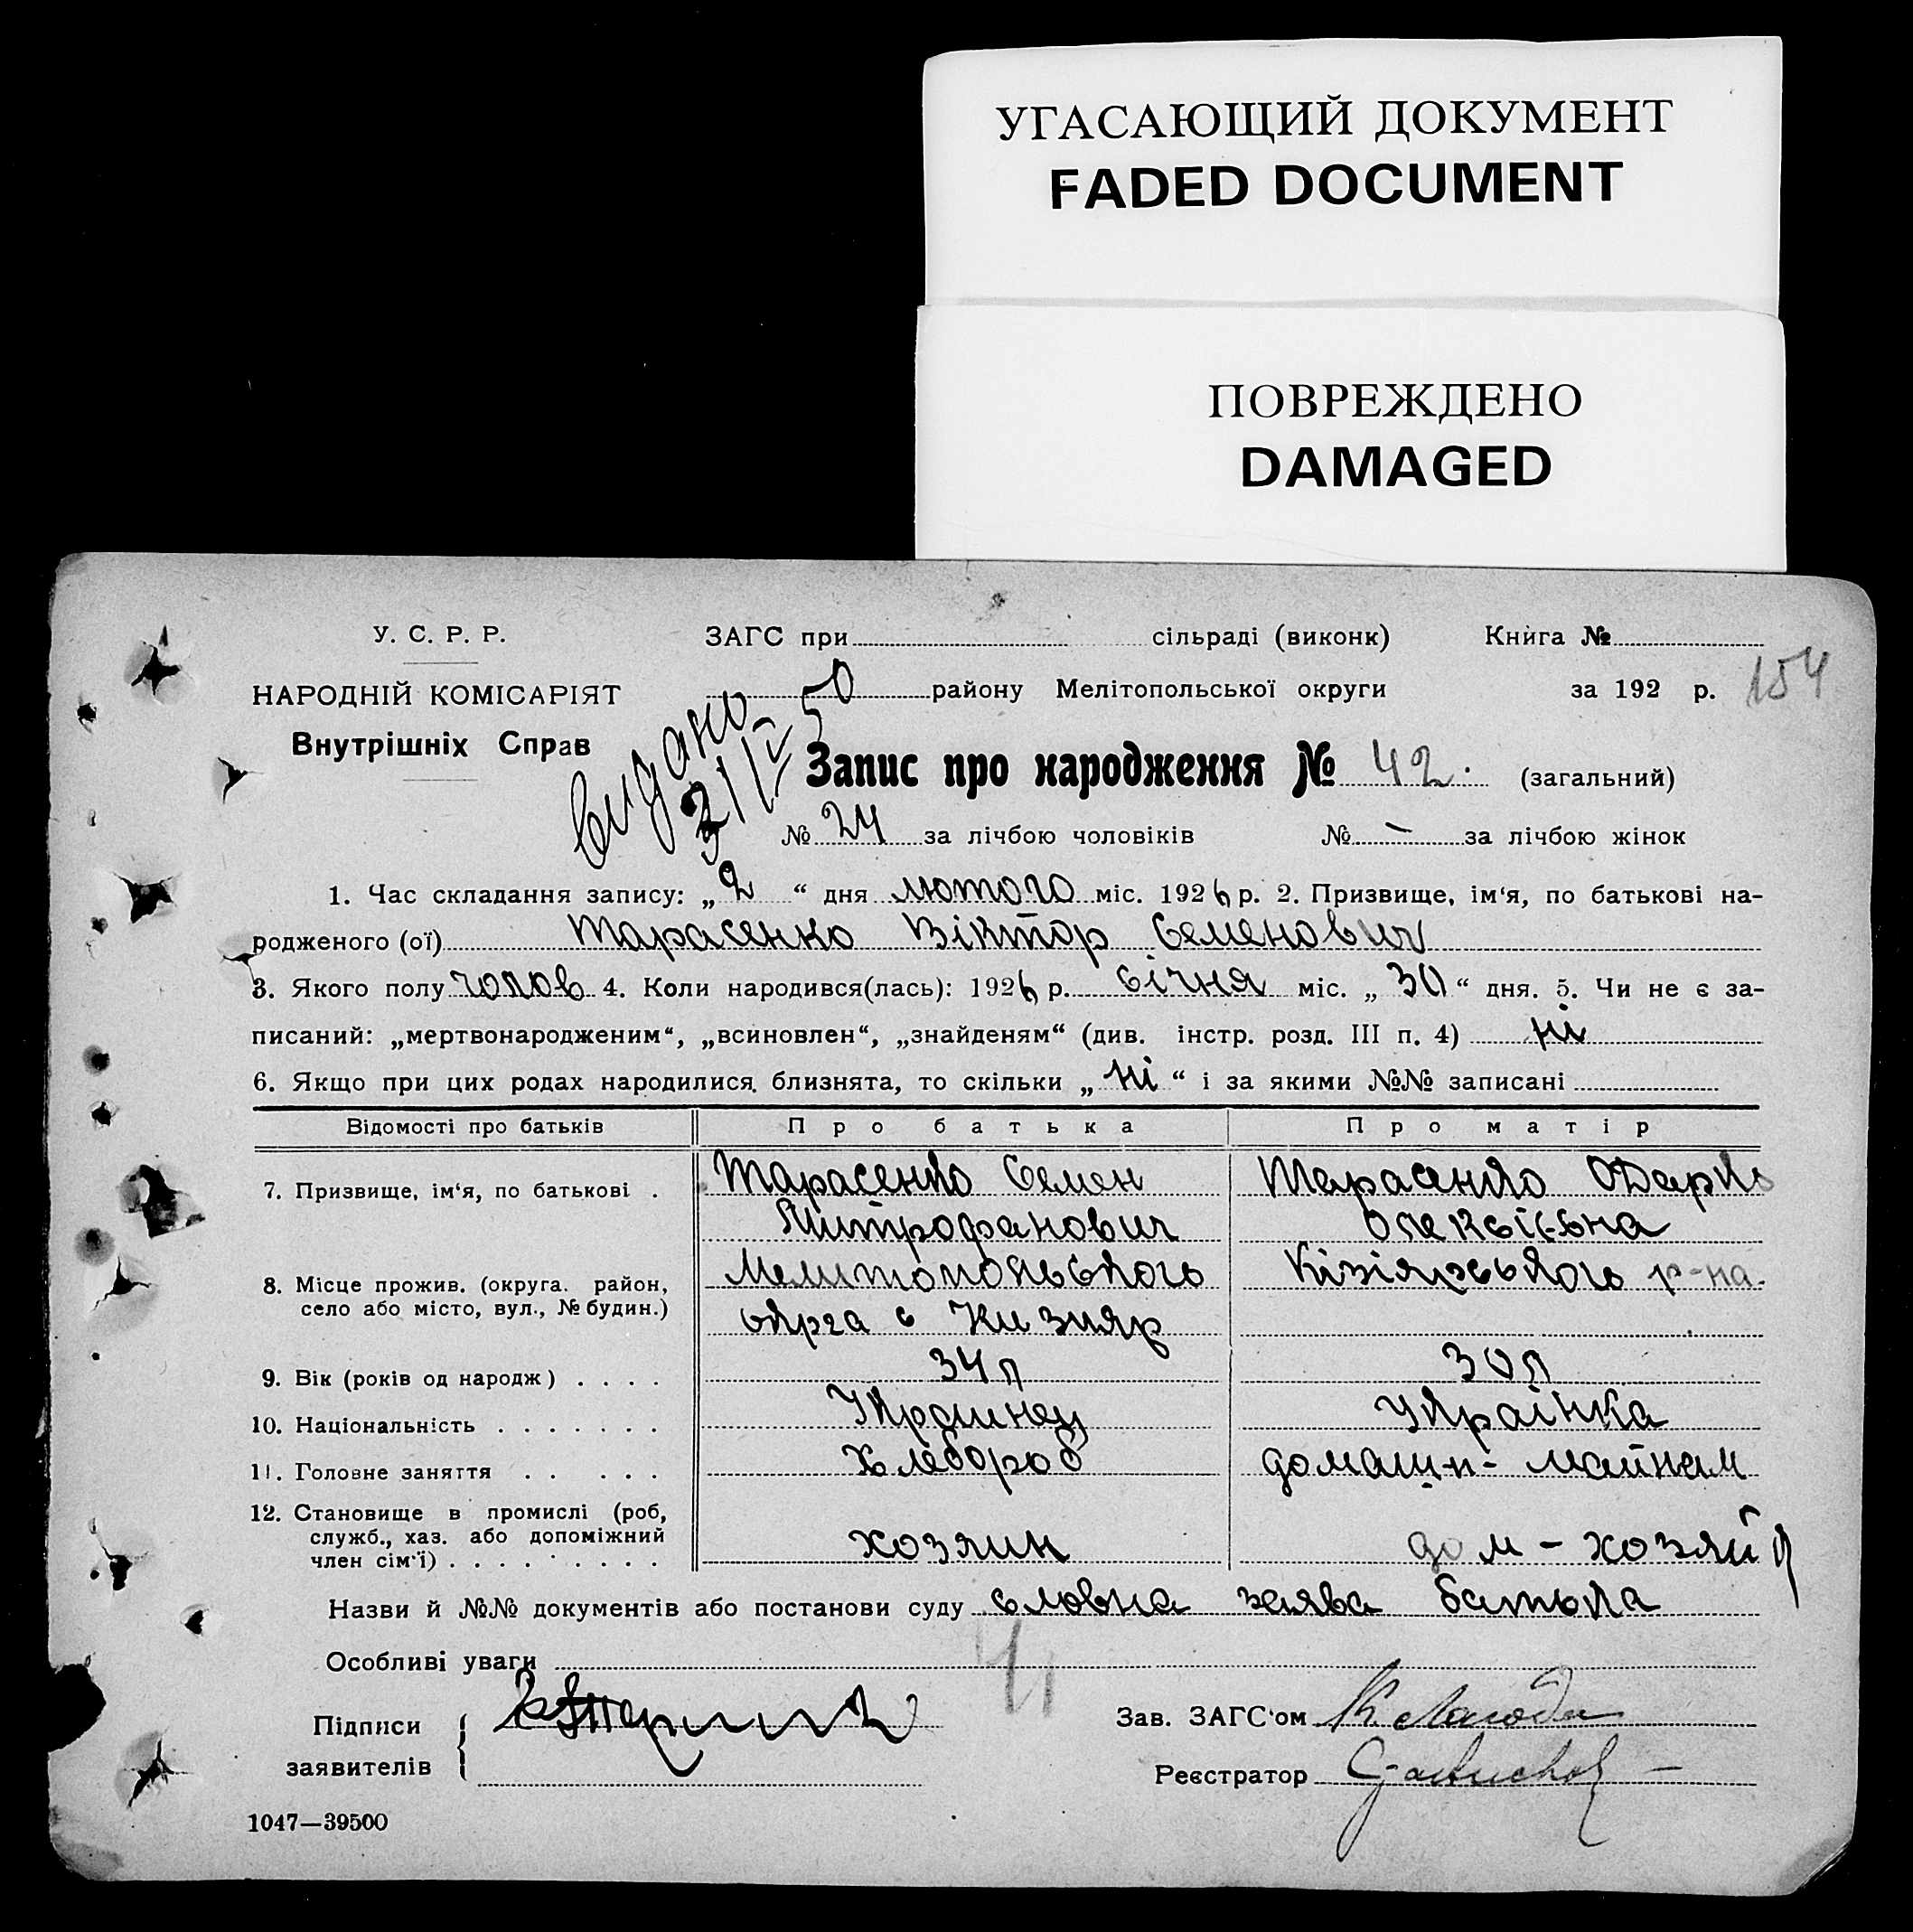 УГАСАЮЩИЙ ДОКУМЕНТ
FADED DOCUMENT
ПОВРЕЖДЕНО
DAMAGED
У. С. Р. Р.
НАРОДНІЙ КОМІСАРІЯТ
Внутрішніх Справ
ЗАГС при сільраді (виконк) Книга №
району Мелітопольської округи за 192 р. 154
видано
50
Запис про народження № 42. (загальний)
№ 24 за лічбою чоловіків № – за лічбою жінок
1. Час складання запису: „ 2 “ дня лютого міс. 1926 р. 2. Призвище, ім‘я, по батькові на-
родженого (ої) Тарасенко Віктор Семенович
3. Якого полу чолов 4. Коли народився(лась): 1926 р. січня міс. „ 30 “ дня. 5. Чи не є за-
писаний: „мертвонародженим“, „всиновлен“, „знайденям“ (див. інстр. розд. III п. 4) ні
6. Якщо при цих родах народилися близнята, то скільки „ ні “ і за якими №№ записані
Відомості про батьків Про батька Про матір
7. Призвище, ім‘я, по батькові . Тарасенко Семен Тарасенко Одарка
Митрофанович Олексієвна
8. Місце прожив. (округа. район, село або місто, вул., № будин.) Мелитопольського Кізіярського р-на.
окрга с Кизияр
9. Вік (років од народж) . . . . 34 л 30 л
10. Національність . . . . . . . Украинец Українка
11. Головне заняття . . . . . Хлебороб домашн-
12. Становище в промислі (роб, служб., хаз. або допоміжний член сім‘ї) . . . . . . . . . . хозяин дом – хозяй
Назви й №№ документів або постанови суду словна заява батька
Особливі уваги
Підписи
заявителів
Зав. ЗАГС‘ом
Реєстратор
1047—39500